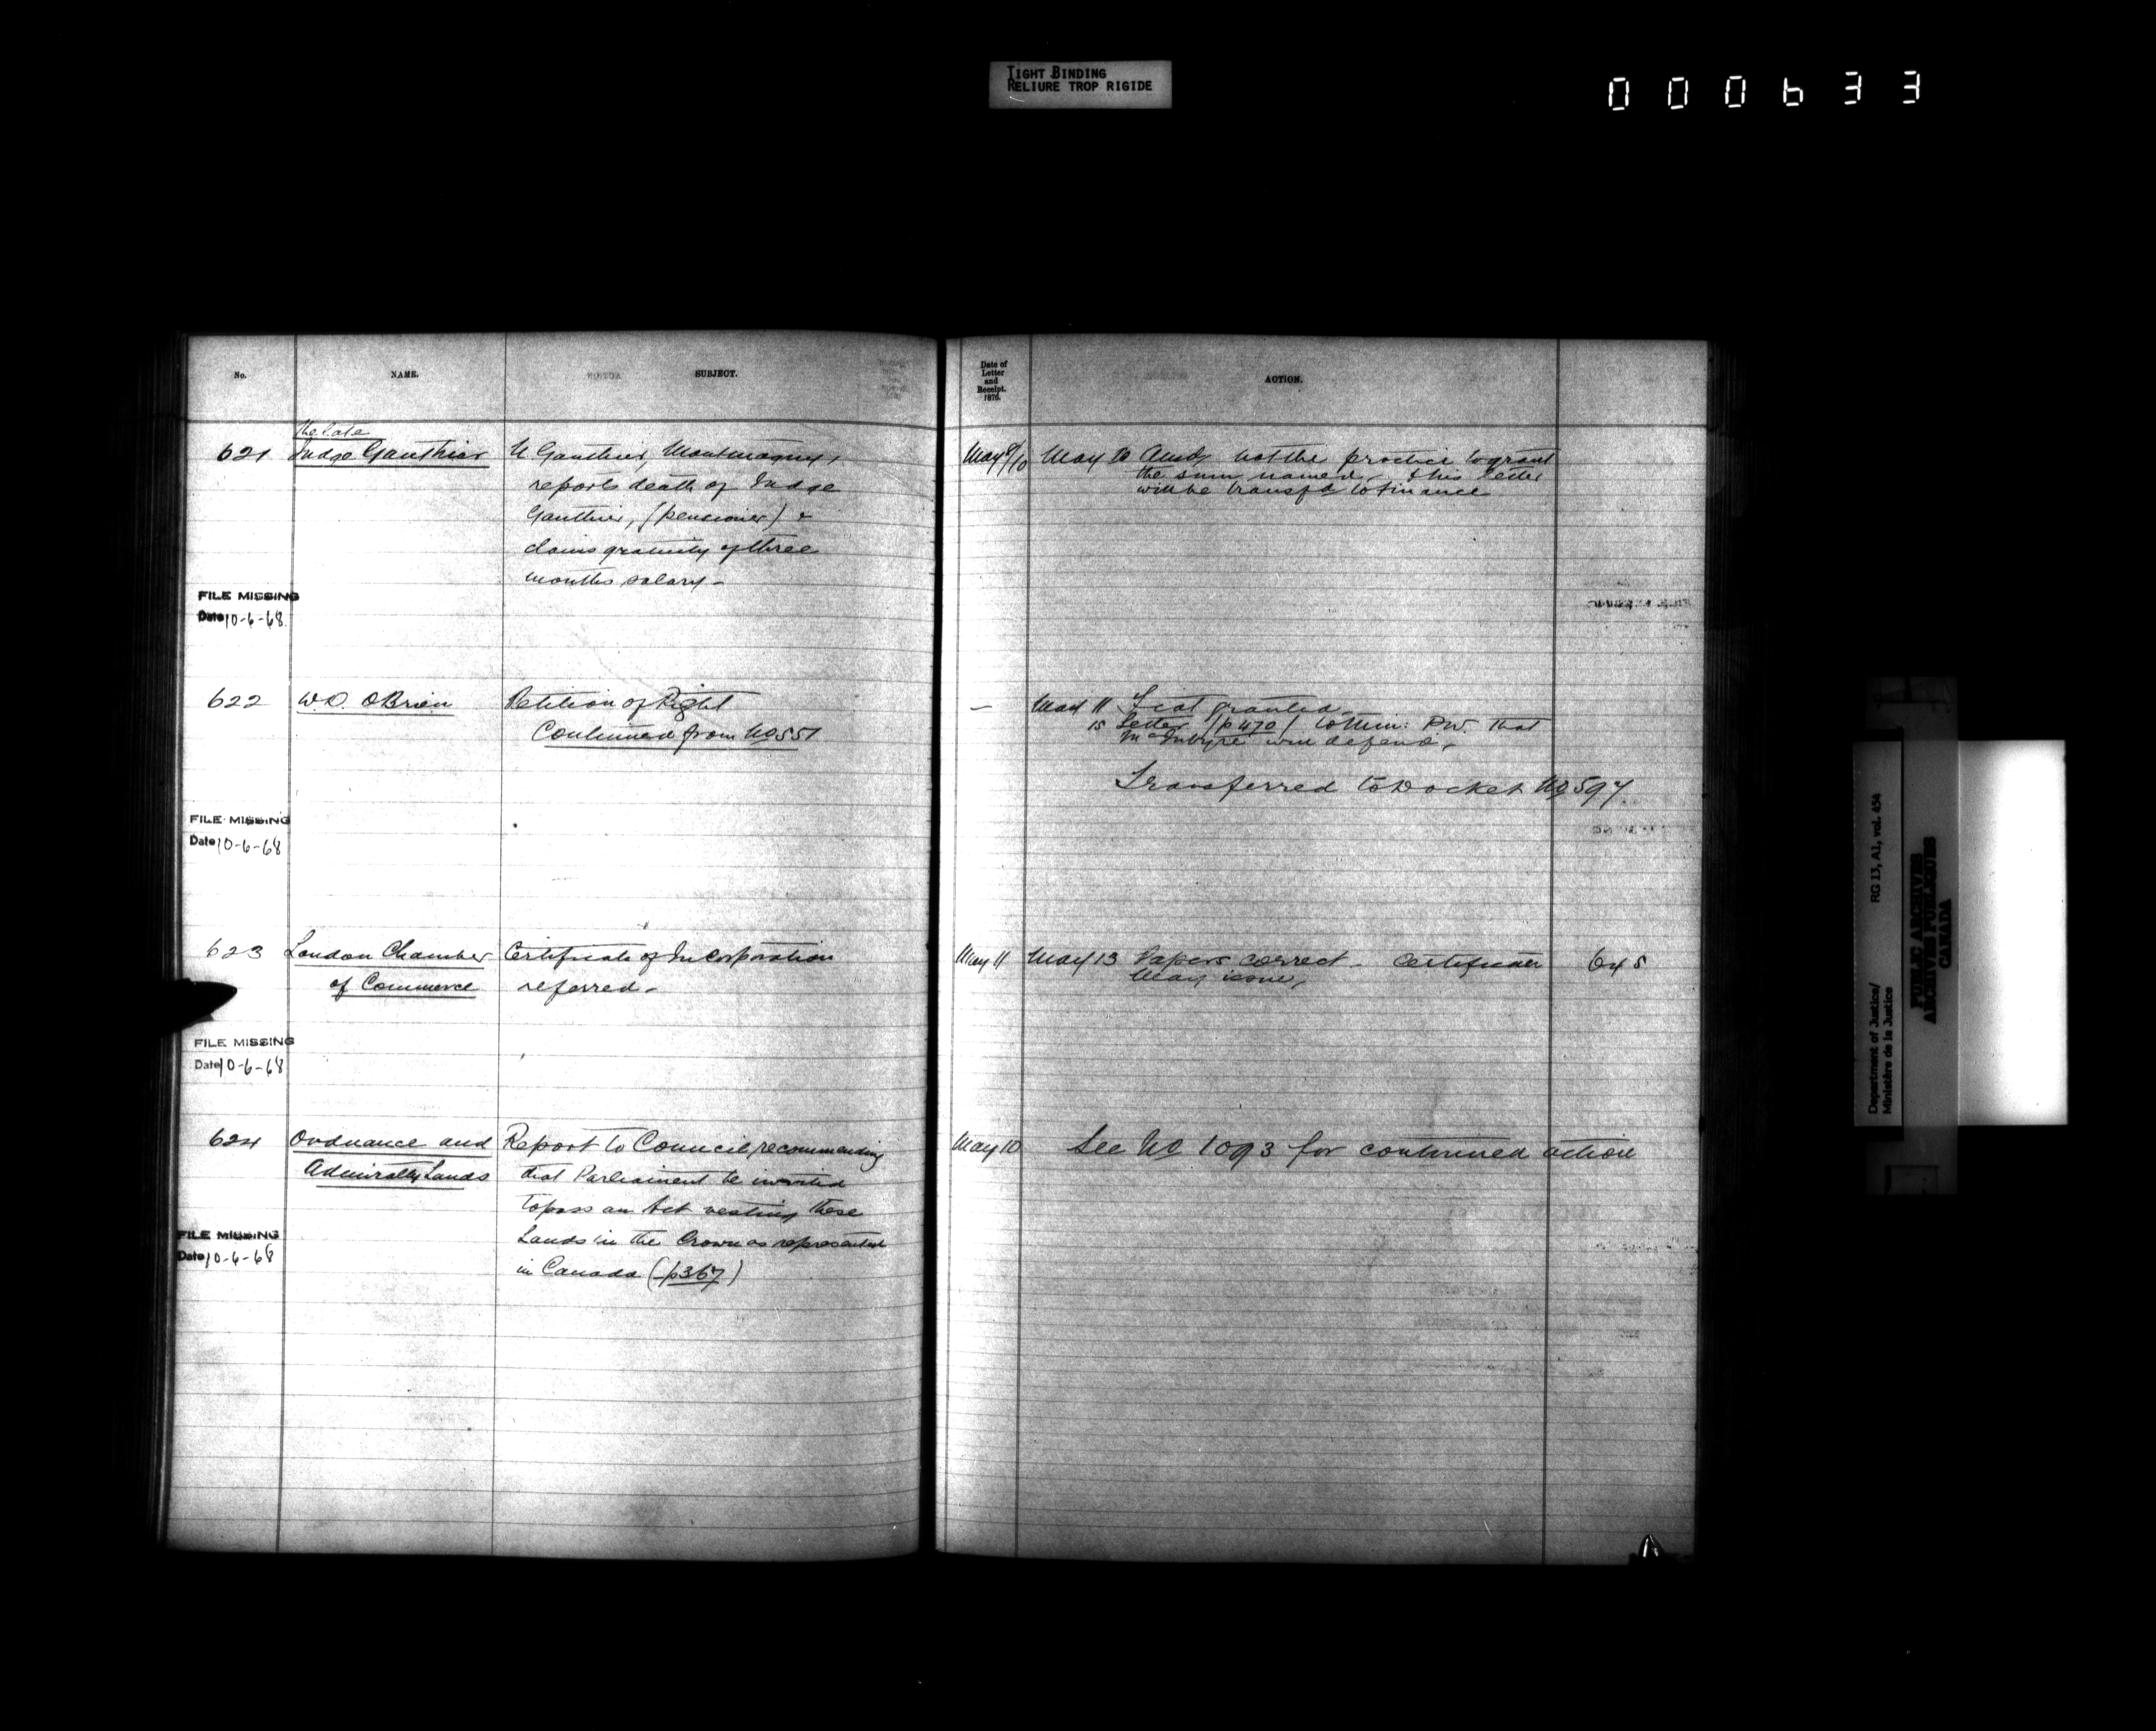 TIGHT BINDING
RELIURE TROP RIGIDE
000633
No.
NAME.
SUBJECT.
Date of
Letter
and
Receipt.
1876.
ACTION.
621
The late
Judge Gauthier
N Gauthier, Montmagny,
reports death of Judge
Gauthier, (pensioner) &
claims gratuity of three
months salary -
May 9/10
May 10 Ansd, not the practice to grant
the sum named, & his letter
will be transfd to Finance
FILE MISSING
Date 10-6-68
622
W.D. OBrien
Petition of Right
Continued from No 551
-
May 11 Fiat granted.
15 Letter (p 470) to Min: P.W. that
McIntyre will defend.
Transferred to Docket No 597
FILE MISSING
Date 10-6-68
623
London Chamber
of Commerce
Certificate of Incorporation
referred -
May 11
May 13 Papers correct - Certificate
may issue,
645
FILE MISSING
Date 10-6-68
624
Ordnance and
Admiralty Lands
Report to Council recommending
that Parliament be invited
to pass an Act vesting these
Lands in the Crown as represented
in Canada (p367)
May 10
See No 1093 for continued action
FILE MISSING
Date 10-6-68
Department of Justice/
Ministère de la Justice
RG 13, A1, vol. 454
PUBLIC ARCHIVES
ARCHIVES PUBLIQUES
CANADA